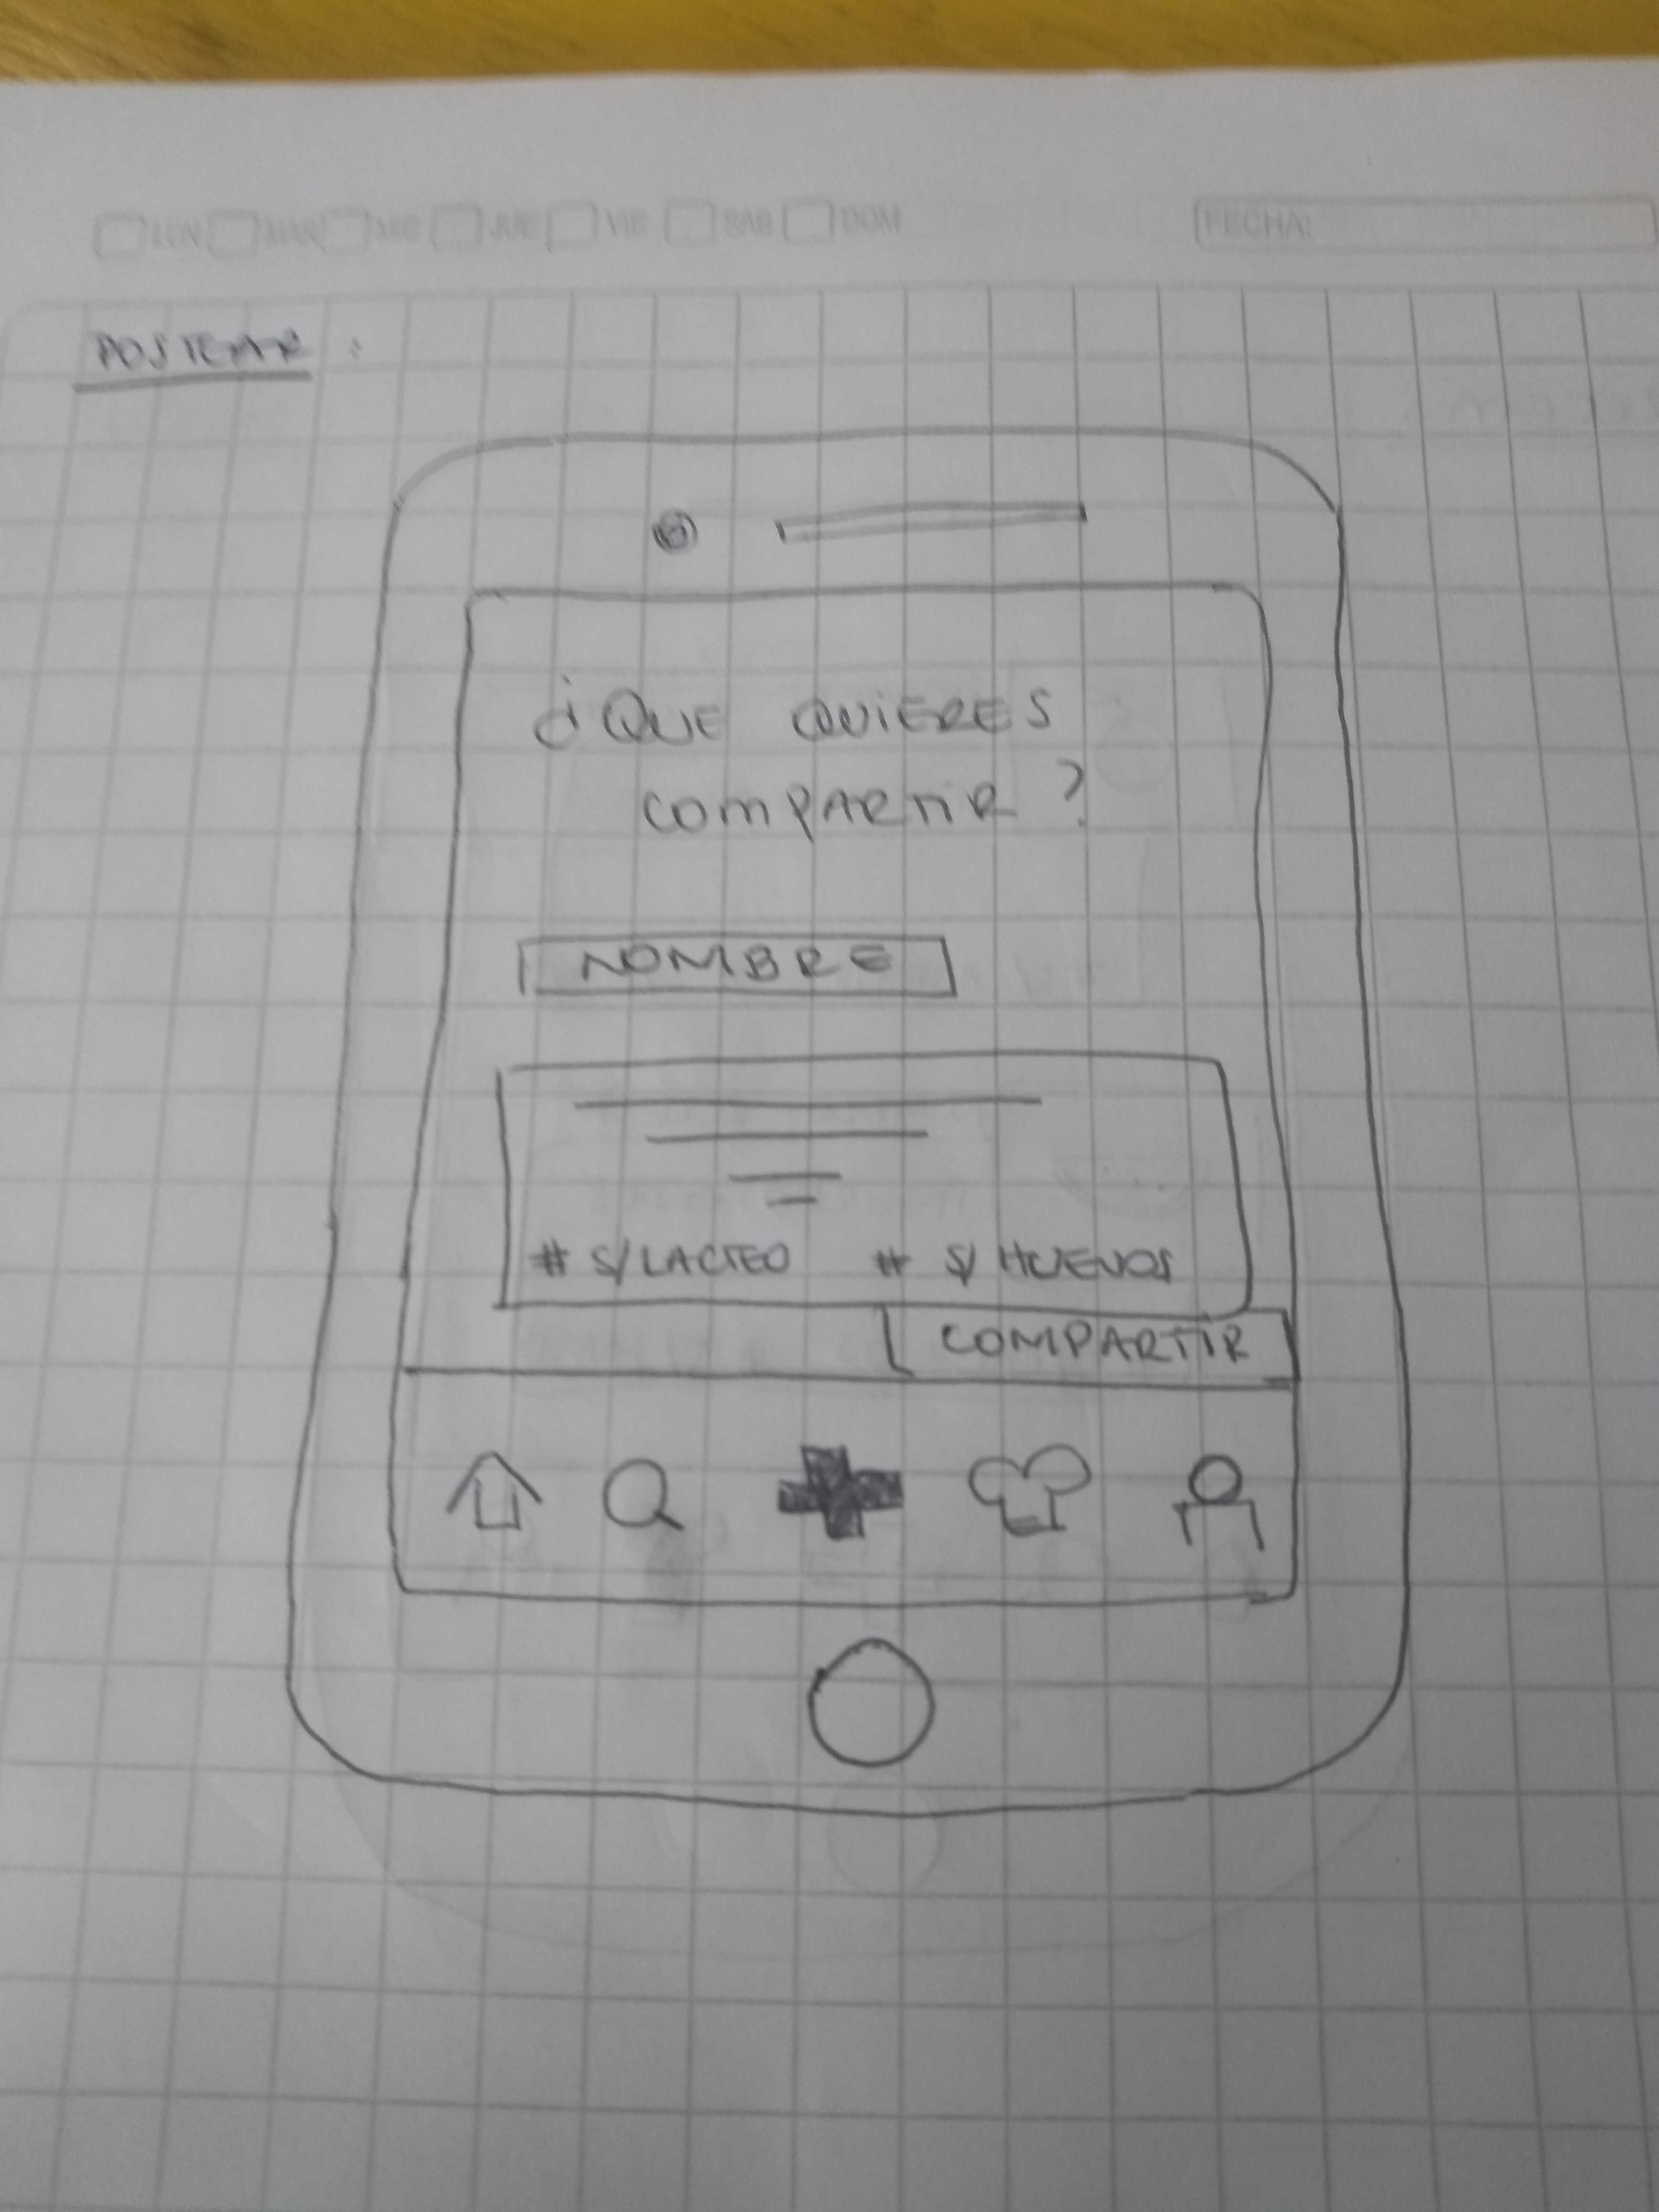 LUN MAR MIE JUE VIE SAB DOM FECHA:
POSTEAR :
¿QUE QUIERES
COMPARTIR ?
NOMBRE
# S/LACTEO # S/HUEVOS
COMPARTIR